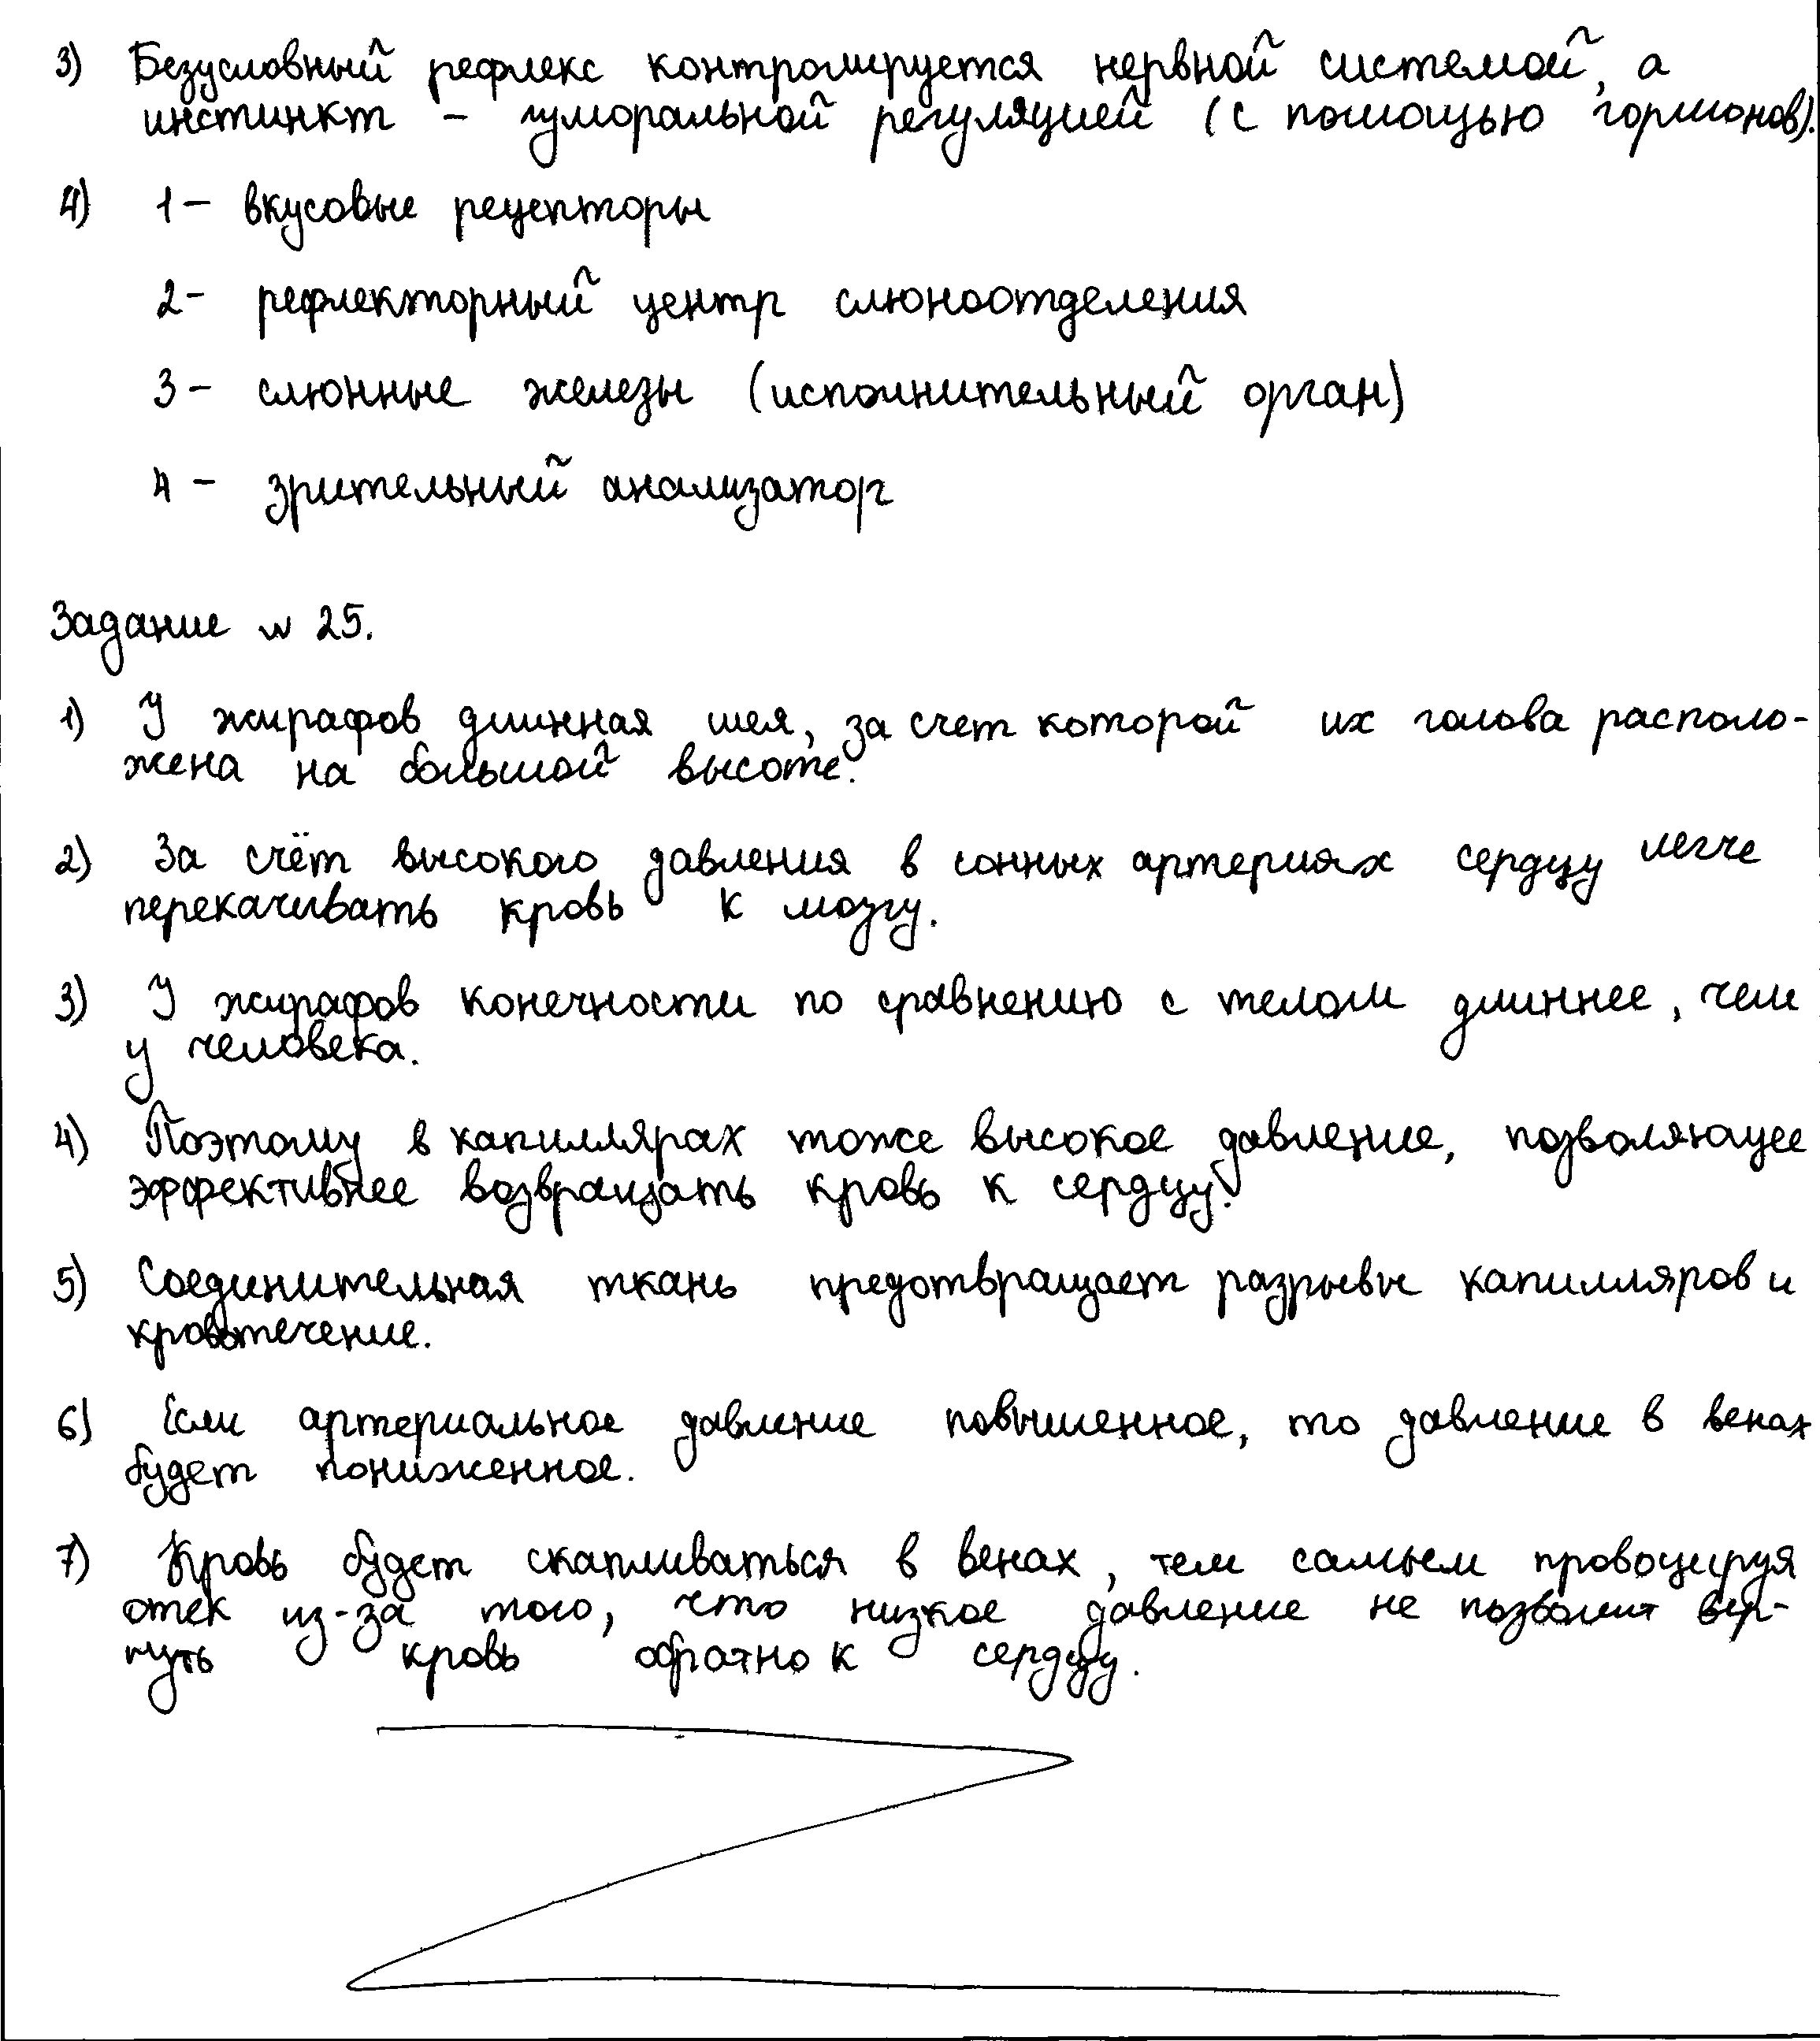 3) Безусловный рефлекс контролируется нервной системой, а
инстинкт – гуморальной регуляцией (с помощью гормонов).
4) 1 – вкусовые рецепторы
2 – рефлекторный центр слюноотделения
3 – слюнные железы (исполнительный орган)
4 – зрительный анализатор
Задание № 25.
1) У жирафов длинная шея, за счет которой их голова располо-
жена на большой высоте.
2) За счёт высокого давления в сонных артериях сердцу легче
перекачивать кровь к мозгу.
3) У жирафов конечности по сравнению с телом длиннее, чем
у человека.
4) Поэтому в капиллярах тоже высокое давление, позволяющее
эффективнее возвращать кровь к сердцу.
5) Соединительная ткань предотвращает разрывы капилляров и
кровотечение.
6) Если артериальное давление повышенное, то давление в венах
будет пониженное.
7) Кровь будет скапливаться в венах, тем самым провоцируя
отек из-за того, что низкое давление не позволит вер-
нуть кровь обратно к сердцу.